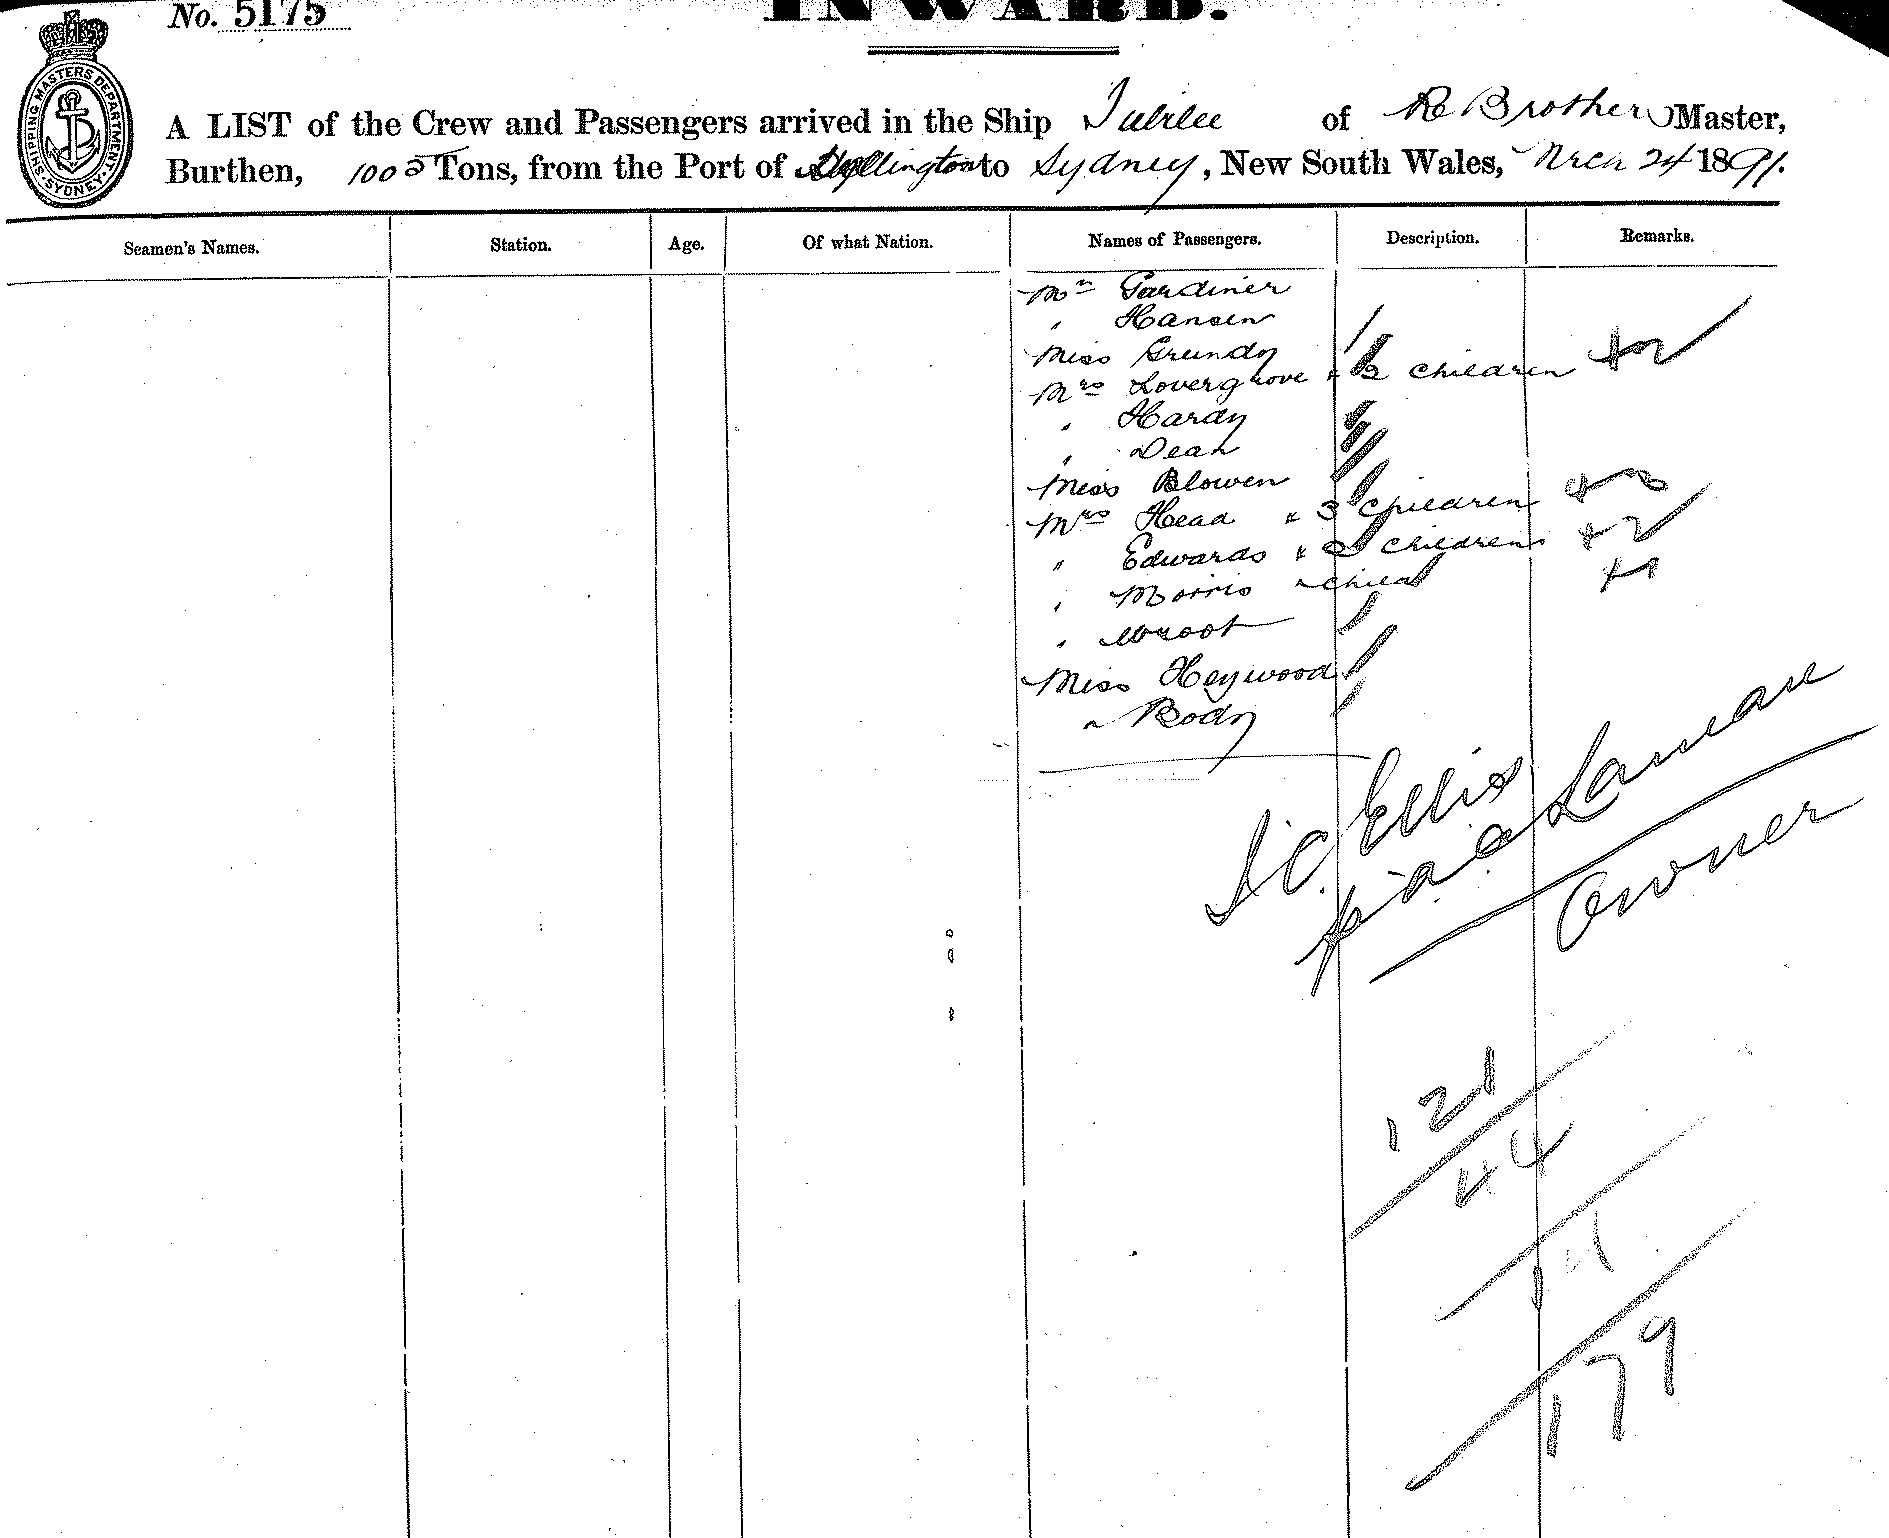 No. 5175
INWARD.
SHIPPING MASTERS DEPARTMENT SYDNEY
A LIST of the Crew and Passengers arrived in the Ship Jubilee of Master,
Burthen, 1005 Tons, from the Port of Wellington to Sydney, New South Wales, 24 1891.
Seamen's Names. Station. Age. Of what Nation. Names of Passengers. Description. Remarks.
Mr Gardiner
" Hansen
Miss Grundy
Mrs Lovergrove & 2 children +2
" Hardy
" Dean
Miss Blowen
Mrs Head & 3 children +3
" Edwards & 2 children +2
" Morris child +1
" Wroot
Miss Heywood
" Body
Ellis
Owner
121
44
14
179